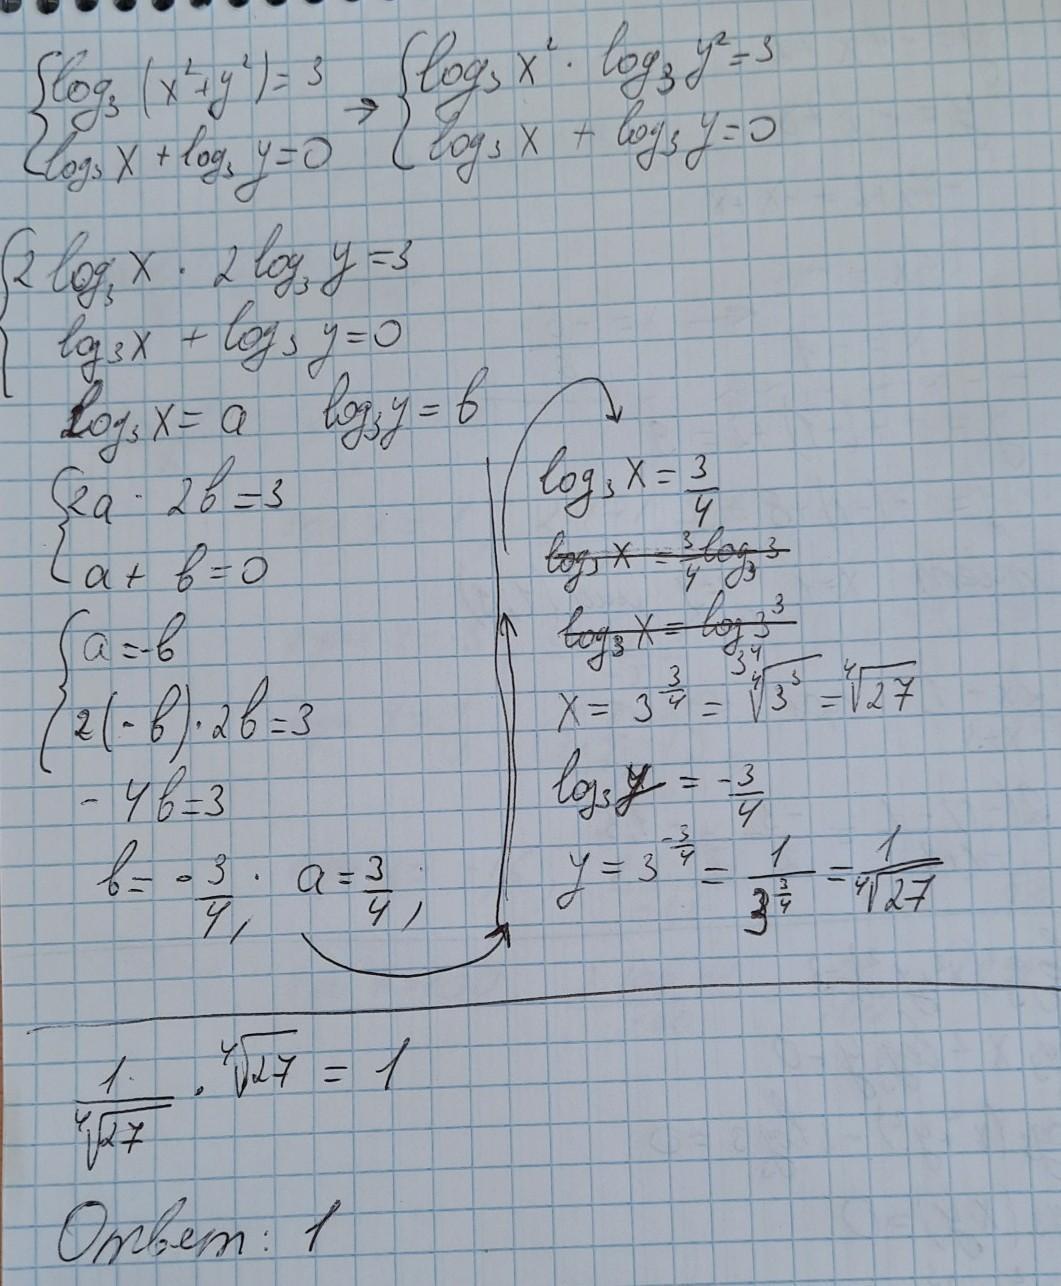 { log₃ (x²+y²) = 3 → { log₃ x² · log₃ y² = 3
log₃ x + log₃ y = 0 log₃ x + log₃ y = 0
{ 2 log₃ x · 2 log₃ y = 3
log₃ x + log₃ y = 0
log₃ x = a log₃ y = b
{ 2a · 2b = 3
a + b = 0
{ a = -b
2(-b) · 2b = 3
- 4b = 3
b = - 3/4, a = 3/4;
log₃ x = 3/4
log₃ x = 3/4 log₃ 3
x = 3^(3/4) = ⁴√3³ = ⁴√27
log₃ y = - 3/4
y = 3^(-3/4) = 1/3^(3/4) = 1/⁴√27
1/⁴√27 · ⁴√27 = 1
Ответ: 1